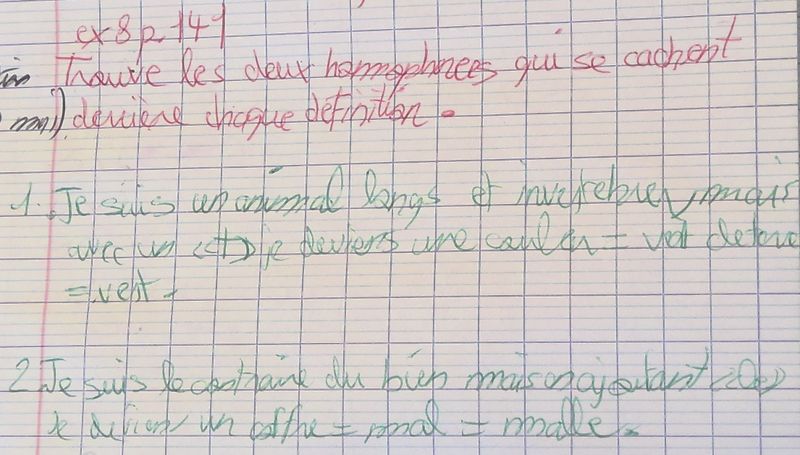 ex 8 p 141
Trouve les deux homophnees qui se cachent
derrière chaque définition.
1. Je suis un animal longs et invertebrer, mais
avec un <<t>> je deviens une couleur = ver de terre
= vert.
2 Je suis le contraire du bien mais en ajoutant <<le>>
je deviens un coffre = mal = malle.